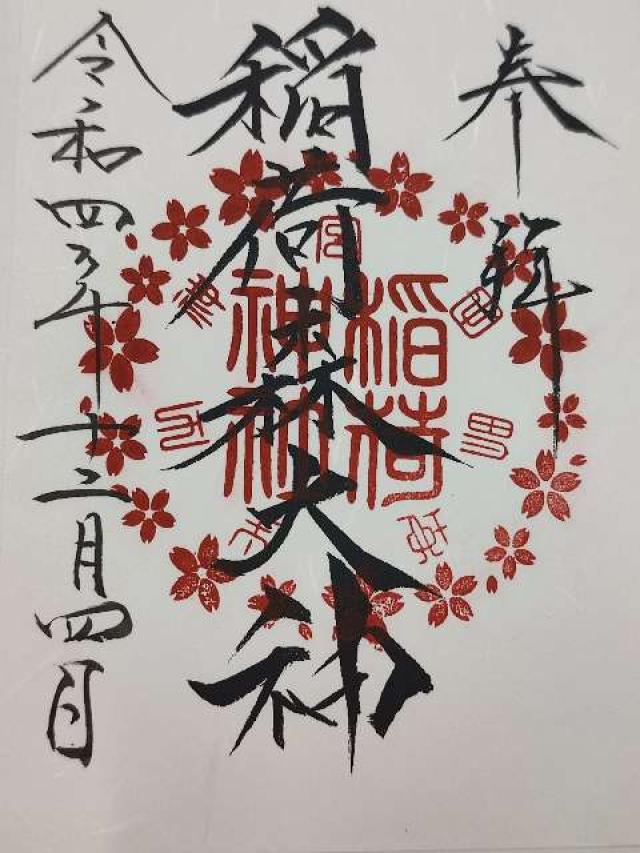 奉拝
稲荷森大神
稲荷
神社
令和四年十二月四日